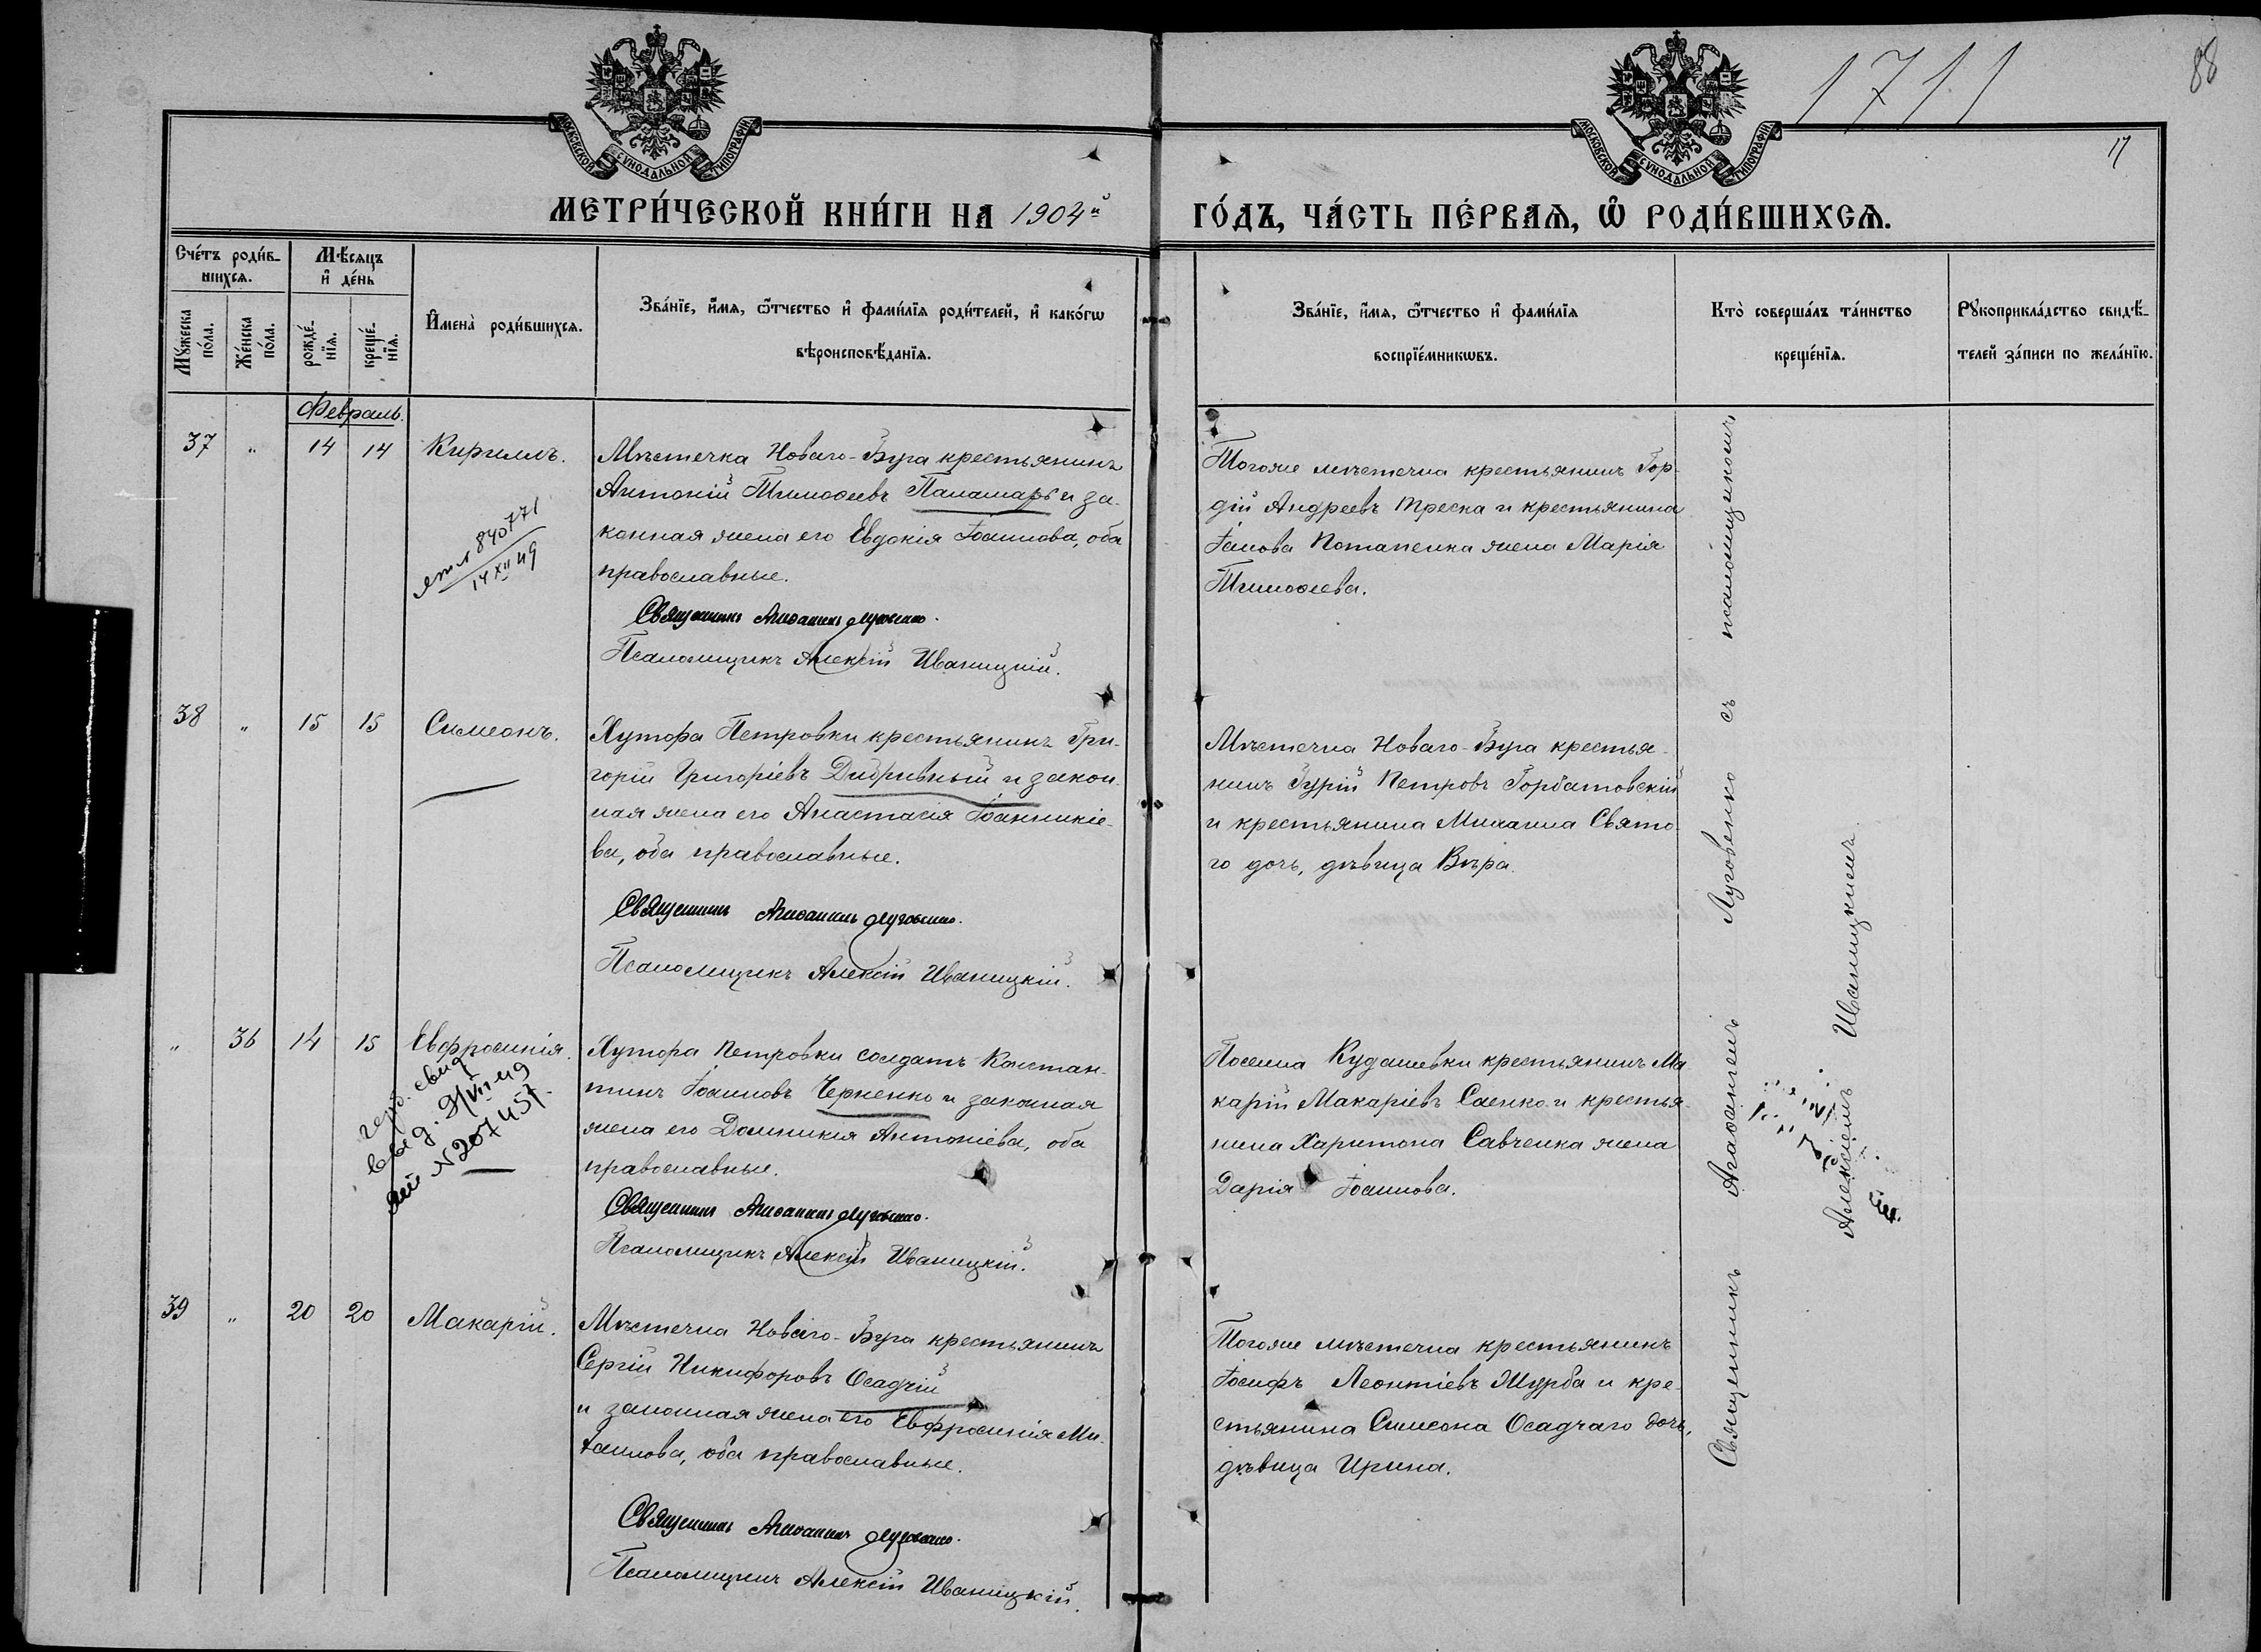 1711
88
17
МОСКОВСКОЙ СѴНОДАЛЬНОЙ ТИПОГРАФІИ.
МОСКОВСКОЙ СѴНОДАЛЬНОЙ ТИПОГРАФІИ.
МЕТРИ́ЧЕСКОЙ КНИ́ГИ НА 1904й ГО́ДЪ, ЧА́СТЬ ПЕ́РВАѦ, Ѡ҆ РОДИ́ВШИХСѦ.
Сче́тъ роди́в-
шихсѧ.
Мꙋ́жеска
по́ла.
Же́нска
по́ла.
Мѣ́сѧцъ
и҆ де́нь
рожде́-
нїѧ.
креще́-
нїѧ.
И҆мена̀ роди́вшихсѧ.
Зва́нїе, и҆́мѧ, ѻ҆́тчество и҆ фами́лїѧ роди́телей, и҆ како́гѡ
вѣроисповѣ́данїѧ.
Зва́нїе, и҆́мѧ, ѻ҆́тчество и҆ фами́лїѧ
воспрїе́мникѡвъ.
Кто̀ соверша́лъ та́инство
креще́нїѧ.
Рꙋкоприкла́дство свидѣ́-
телей за́писи по жела́нїю.
Февраль.
37 " 14 14 Кириллъ.
840771
14 XII 49
Мѣстечка Новаго-Буга крестьянинъ
Антоній Тимоѳеевъ Паламарь и за-
конная жена его Евдокія Іоаннова, оба
православные.
Священникъ Агаѳангелъ Луговенко.
Псаломщикъ Алексій Иваницкій.
Тогоже мѣстечка крестьянинъ Гор-
дій Андреевъ Треска и крестьянина
Іакова Потапенка жена Марія
Тимоѳеева.
38 " 15 15 Симеонъ.
Хутора Петровки крестьянинъ Гри-
горій Григоріевъ Дибривный и закон-
ная жена его Анастасія Іоанникіе-
ва, оба православные.
Священникъ Агаѳангелъ Луговенко.
Псаломщикъ Алексій Иваницкій.
Мѣстечка Новаго-Буга крестья-
нинъ Гурій Петровъ Горбатовскій
и крестьянина Михаила Свято-
го дочь, дѣвица Вѣра.
" 36 14 15 Евфросинія.
свид
выд. 9/VII 49
№ 207457.
Хутора Петровки солдатъ Констан-
тинъ Іоанновъ Черненко и законная
жена его Домникія Антоніева, оба
православные.
Священникъ Агаѳангелъ Луговенко.
Псаломщикъ Алексій Иваницкій.
Поселка Кудашевки крестьянинъ Ма-
карій Макаріевъ Саенко и крестья-
нина Харитона Савченка жена
Дарія Іоаннова.
39 " 20 20 Макарій.
Мѣстечка Новаго-Буга крестьянинъ
Сергій Никифоровъ Осадчій
и законная жена его Евфросинія Ми-
хаилова, оба православные.
Священникъ Агаѳангелъ Луговенко.
Псаломщикъ Алексій Иваницкій.
Тогоже мѣстечка крестьянинъ
Іосифъ Леонтіевъ Журба и кре-
стьянина Симеона Осадчаго дочь,
дѣвица Ирина.
Священникъ Агаѳангелъ Луговенко съ псаломщикомъ
Алексіемъ Иваницкимъ.